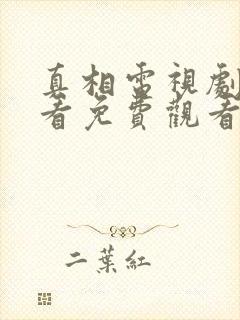 真相電視劇
看免費觀看
二葉紅